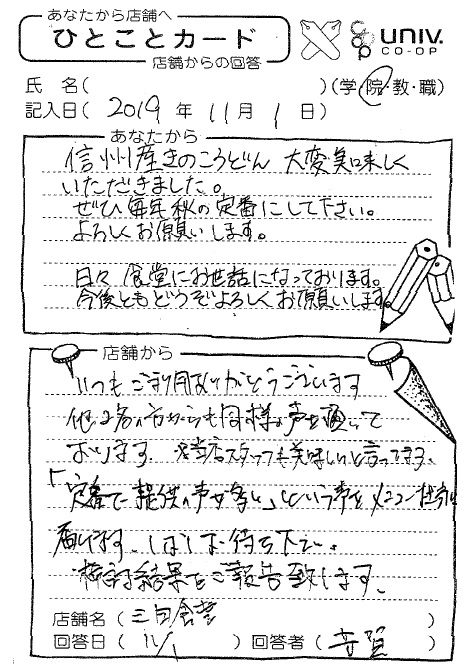 あなたから店舗へ
ひとことカード
店舗からの回答
UNIV.
CO-OP
氏 名( )(学・院・教・職)
記入日( 2019 年 11 月 1 日)
あなたから
信州産きのこうどん 大変美味しく
いただきました。
ぜひ毎年秋の定番にして下さい。
よろしくお願いします。
日々 食堂にお世話になっております。
今後ともどうぞよろしくお願いします。
店舗から
いつもご利用ありがとうございます
他の方からも同様の声を頂いて
おります。当店スタッフも美味しいと言ってます。
「定番で提供の声が多い」という声をメニュー担当に
届けます。しばしお待ち下さい。
検討結果をご報告致します。
店舗名( 食堂 )
回答日( 11/1 )回答者( 古賀 )